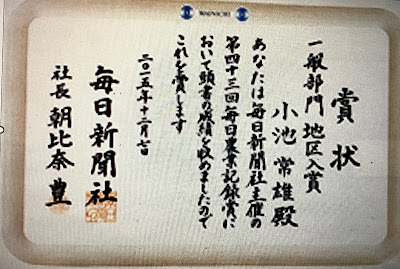 MAINICHI
賞状
一般部門 地区入賞
小池常雄殿
あなたは毎日新聞社主催の
第四十三回毎日農業記録賞に
おいて頭書の成績を收めましたので
これを賞します
二〇一五年十二月七日
毎日新聞社
社長 朝比奈豊